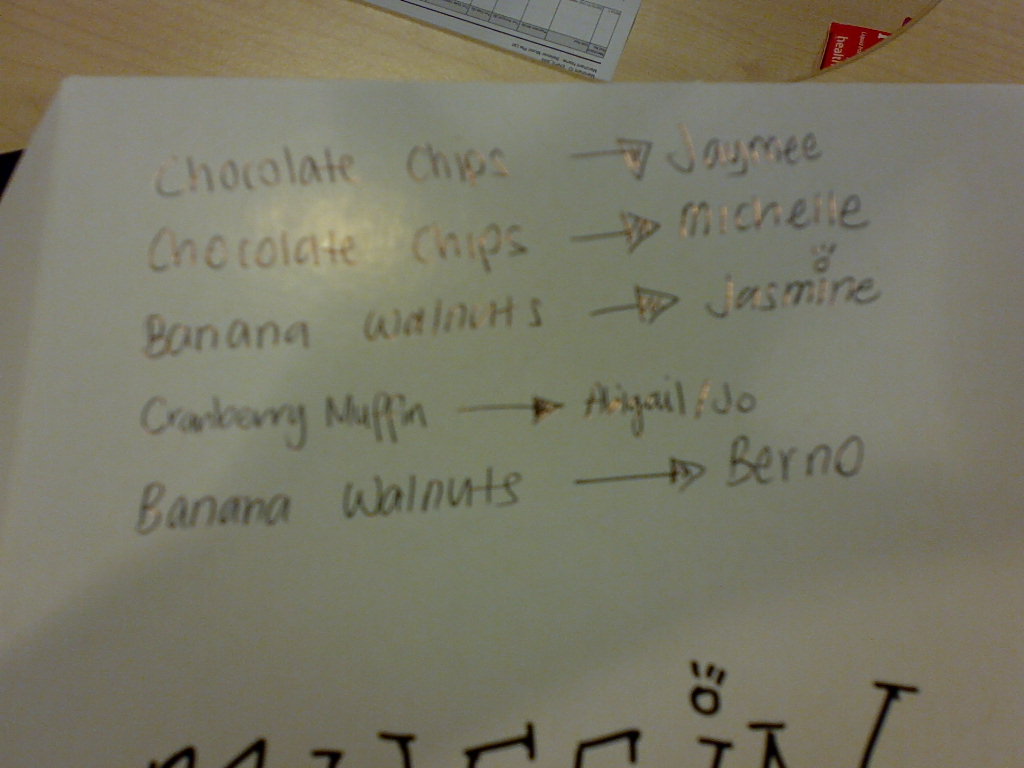 Chocolate Chips → Jaymee
Chocolate Chips → Michelle
Banana Walnuts → Jasmine
Cranberry Muffin → Abigail/Jo
Banana Walnuts → Berno